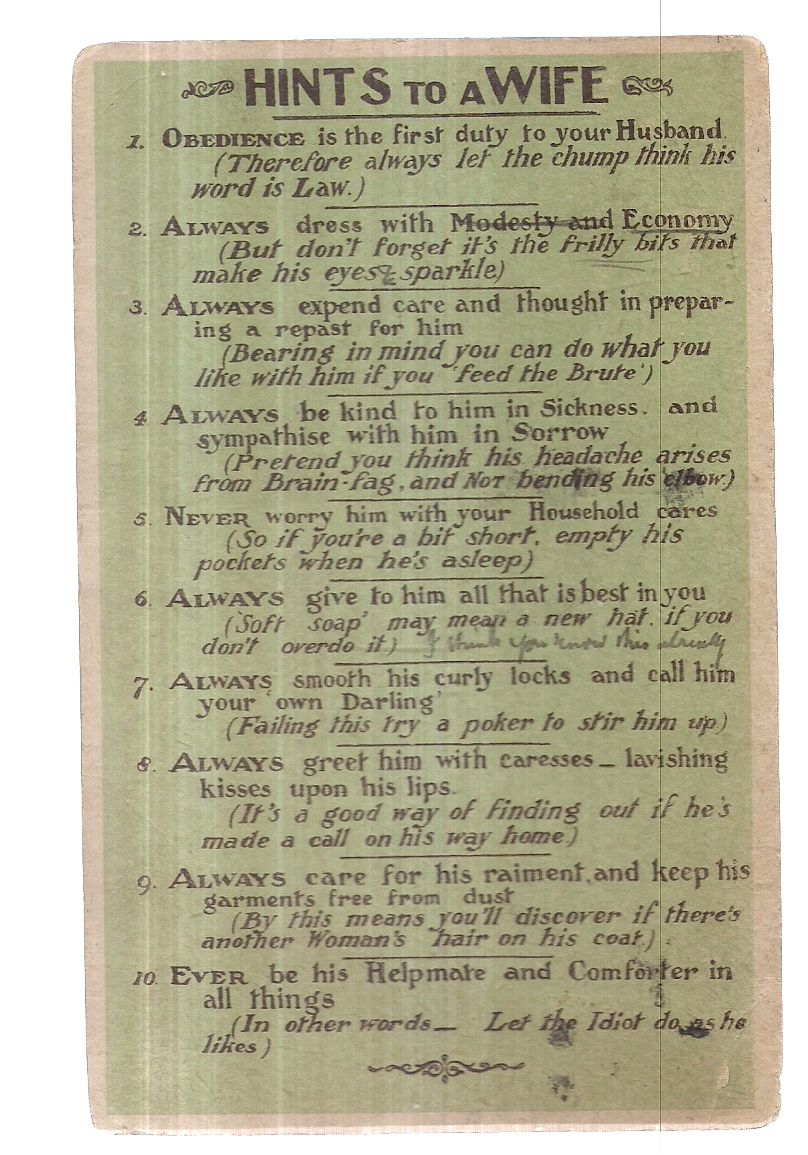 HINTS TO A WIFE
1. OBEDIENCE is the first duty to your Husband.
(Therefore always let the chump think his
word is Law.)
2. ALWAYS dress with Modesty and Economy
(But don't forget it's the frilly bits that
make his eyes sparkle)
3. ALWAYS expend care and thought in prepar-
ing a repast for him
(Bearing in mind you can do what you
like with him if you 'feed the Brute')
4 ALWAYS be kind to him in Sickness. and
sympathise with him in Sorrow
(Pretend you think his headache arises
from Brain-fag, and NOT bending his elbow.)
5. NEVER worry him with your Household cares
(So if you're a bit short, empty his
pockets when he's asleep)
6. ALWAYS give to him all that is best in you
(Soft soap' may mean a new hat. if you
don't overdo it.) I think you know this already
7. ALWAYS smooth his curly locks and call him
your 'own Darling'
(Failing this try a poker to stir him up)
8. ALWAYS greet him with caresses — lavishing
kisses upon his lips.
(It's a good way of finding out if he's
made a call on his way home.)
9. ALWAYS care for his raiment, and keep his
garments free from dust
(By this means you'll discover if there's
another Woman's hair on his coat.)
10. EVER be his Helpmate and Comforter in
all things
(In other words — Let the Idiot do as he
likes)